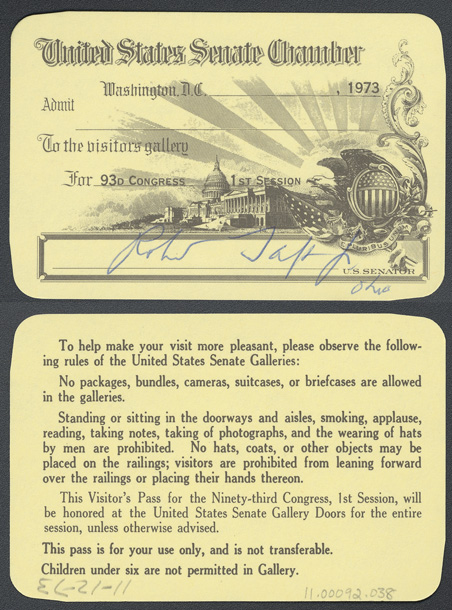 United States Senate Chamber
Washington, D.C. , 1973
Admit
To the visitors gallery
For 93D CONGRESS 1ST SESSION
Robert Taft Jr
U.S. SENATOR
Ohio
To help make your visit more pleasant, please observe the follow-
ing rules of the United States Senate Galleries:
No packages, bundles, cameras, suitcases, or briefcases are allowed
in the galleries.
Standing or sitting in the doorways and aisles, smoking, applause,
reading, taking notes, taking of photographs, and the wearing of hats
by men are prohibited. No hats, coats, or other objects may be
placed on the railings; visitors are prohibited from leaning forward
over the railings or placing their hands thereon.
This Visitor's Pass for the Ninety-third Congress, 1st Session, will
be honored at the United States Senate Gallery Doors for the entire
session, unless otherwise advised.
This pass is for your use only, and is not transferable.
Children under six are not permitted in Gallery.
11.00092.038